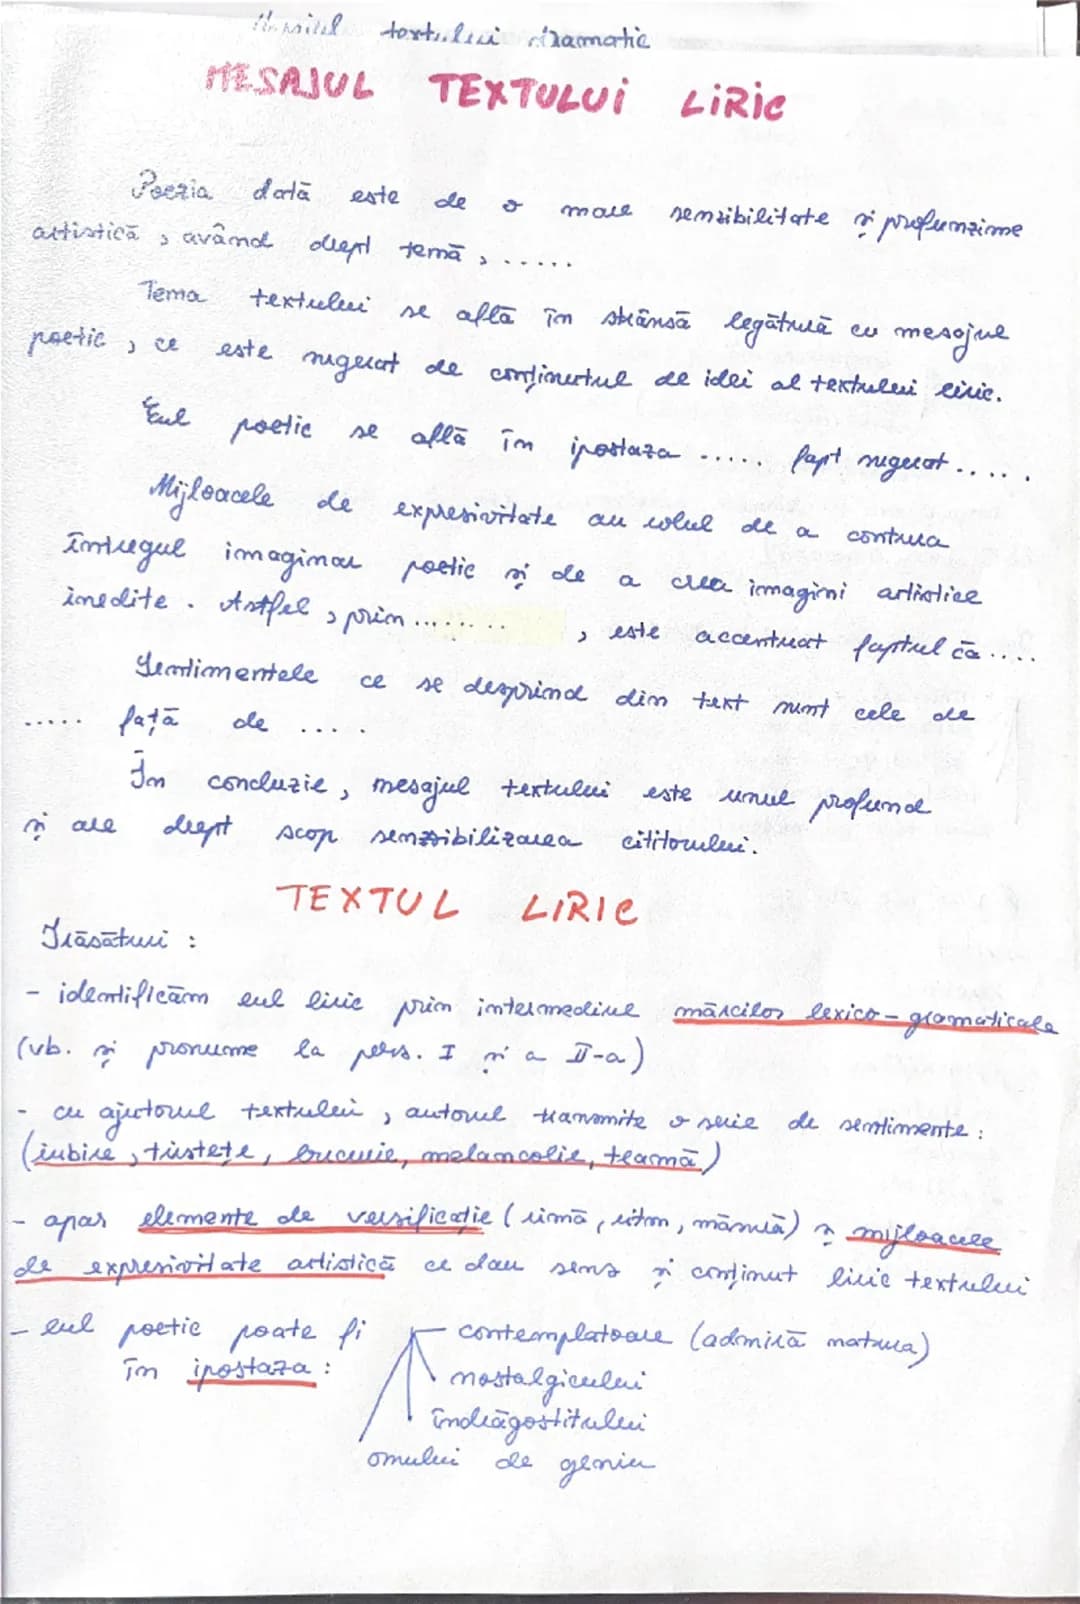 textului dramatic
MESAJUL TEXTULUI LIRIC
Poezia dată este de o mare sensibilitate și profunzime
artistică, având drept temă, .....
Tema textului se află în strânsă legătură cu mesajul
poetic, ce este sugerat de conținutul de idei al textului liric.
Eul poetic se află în ipostaza ..... fapt sugerat .....
Mijloacele de expresivitate au rolul de a contura
întregul imaginar poetic și de a crea imagini artistice
inedite. Astfel, prin ........ , este accentuat faptul că ....
Sentimentele ce se desprind din text sunt cele de
..... față de ....
În concluzie, mesajul textului este unul profund
și are drept scop sensibilizarea cititorului.
TEXTUL LIRIC
Trăsături :
- identificăm eul liric prin intermediul mărcilor lexico-gramaticale
(vb. și pronume la pers. I și a II-a)
- cu ajutorul textului, autorul transmite o serie de sentimente :
(iubire, tristețe, bucurie, melancolie, teamă)
- apar elemente de versificație (rimă, ritm, măsură) și mijloacele
de expresivitate artistică ce dau sens și conținut liric textului
- eul poetic poate fi
în ipostaza :
contemplatoare (admiră natura)
nostalgicului
îndrăgostitului
omului de geniu